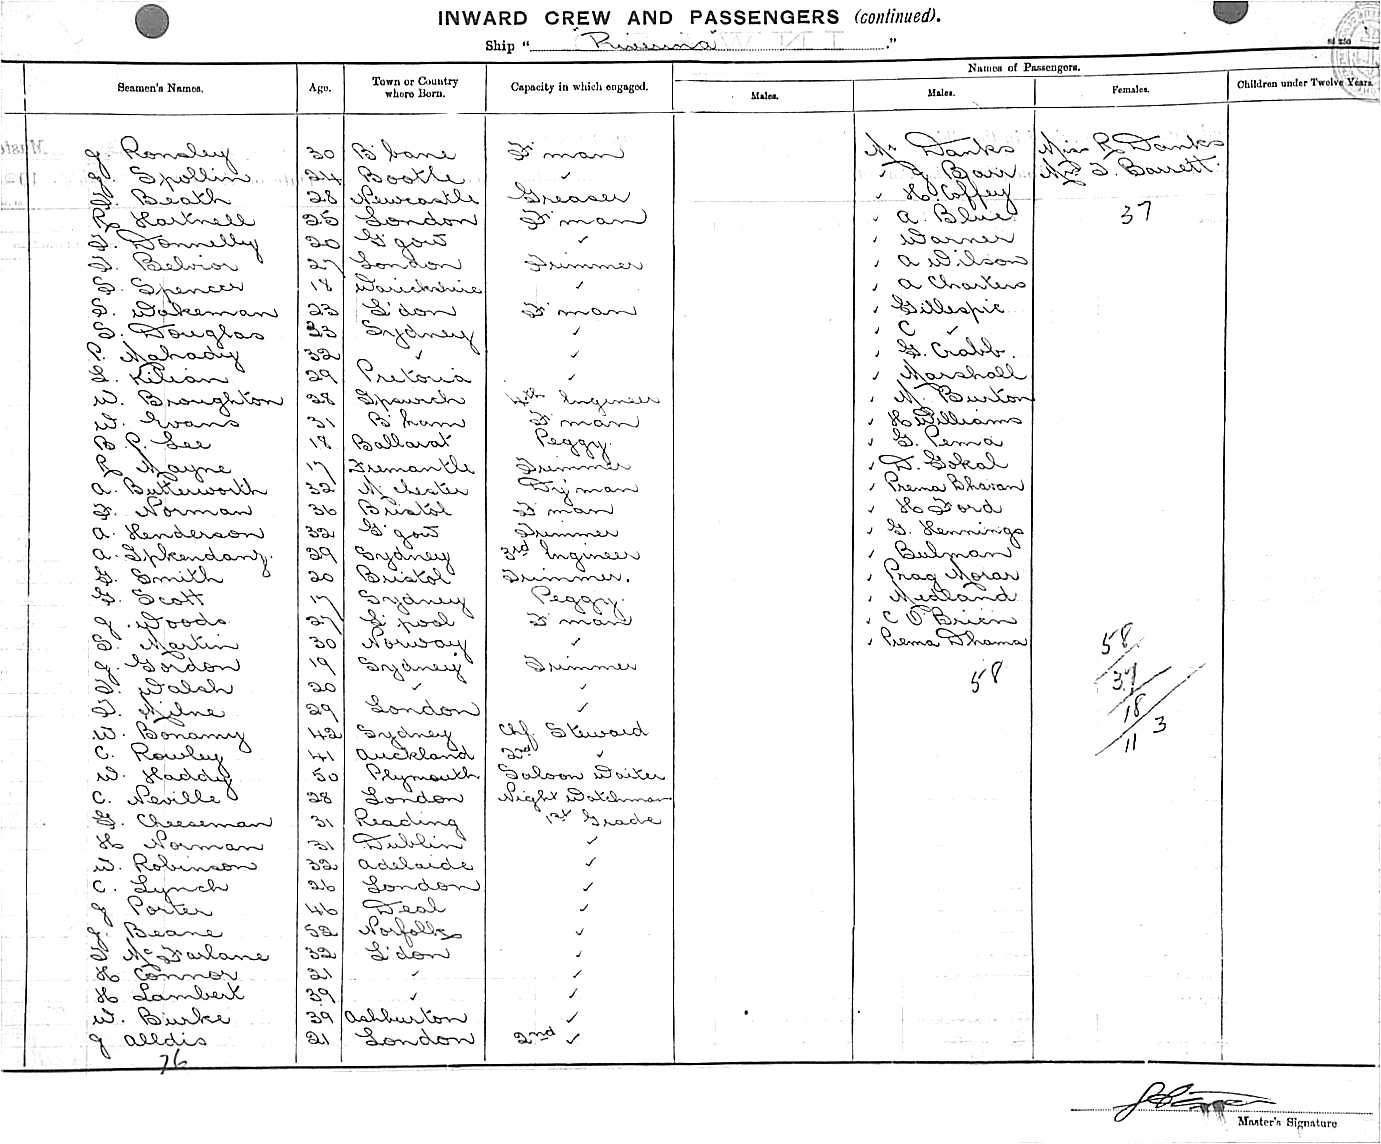 INWARD CREW AND PASSENGERS (continued).
Ship " "Riverina" "
Names of Passengers.
Seamen's Names. Age. Town or Country where Born. Capacity in which engaged. Males. Males. Females. Children under Twelve Years.
J. Ronsley 30 B'bane F'man Mr Danks Miss R Danks
J. Spollin 24 Bootle ✓ " J Barr Mrs T. Barrett
Beath 28 Newcastle Greaser " H. Coffey
R Hartnell 25 London F'man " A. Blue 37
T. Donnelly 20 G'gow ✓ " Warner
Belvior 27 London Trimmer " A Wilson
Spencer 18 Warickshire ✓ " A Charters
Wakeman 23 L'don F'man " Gillespie
Douglas 23 Sydney ✓ " C ✓
P. Mahady 32 ✓ ✓ " G. Crabb.
Kilian 29 Pretoria ✓ " Marshall
W. Broughton 28 Ipswich 4th Engineer " M. Burton
W. Evans 31 B'ham F'man " H Williams
B P. Lee 18 Ballarat Peggy. " G. Pema
R Mayne 17 Fremantle Trimmer " D. Gokal
A. Butterworth 32 M'chester D'yman " Prema Bhavan
F. Norman 36 Bristol F'man " H Ford
A. Henderson 32 G'gow Trimmer " G. Hennings
A. 29 Sydney 3rd Engineer " Bulman
Smith 20 Bristol Trimmer. " Prag Morar
Scott 17 Sydney Peggy. " Medland
J. Woods 27 L'pool F'man " C O'Brien
Martin 30 Norway ✓ " Prema Dhama 58
J. Gordon 19 Sydney Trimmer 58 37
Walsh 20 ✓ ✓ 18
Milne 29 London ✓ 11 3
W. Bonamy 42 Sydney Chf. Steward
C. Rowley 41 Auckland 2nd ✓
W. Haddy 50 Plymouth Saloon Waiter
C. Neville 28 London Night Watchman
Cheeseman 31 Reading 1st Grade
H Norman 31 Dublin ✓
W. Robinson 32 Adelaide ✓
C. Lynch 26 London ✓
J Porter 46 Deal ✓
J. Beane 52 Norfolk ✓
McFarlane 32 L'don ✓
H Connor 21 ✓ ✓
H Lambert 39 ✓ ✓
W. Burke 39 Ashburton ✓
J Alldis 21 London 2nd ✓
76
Master's Signature